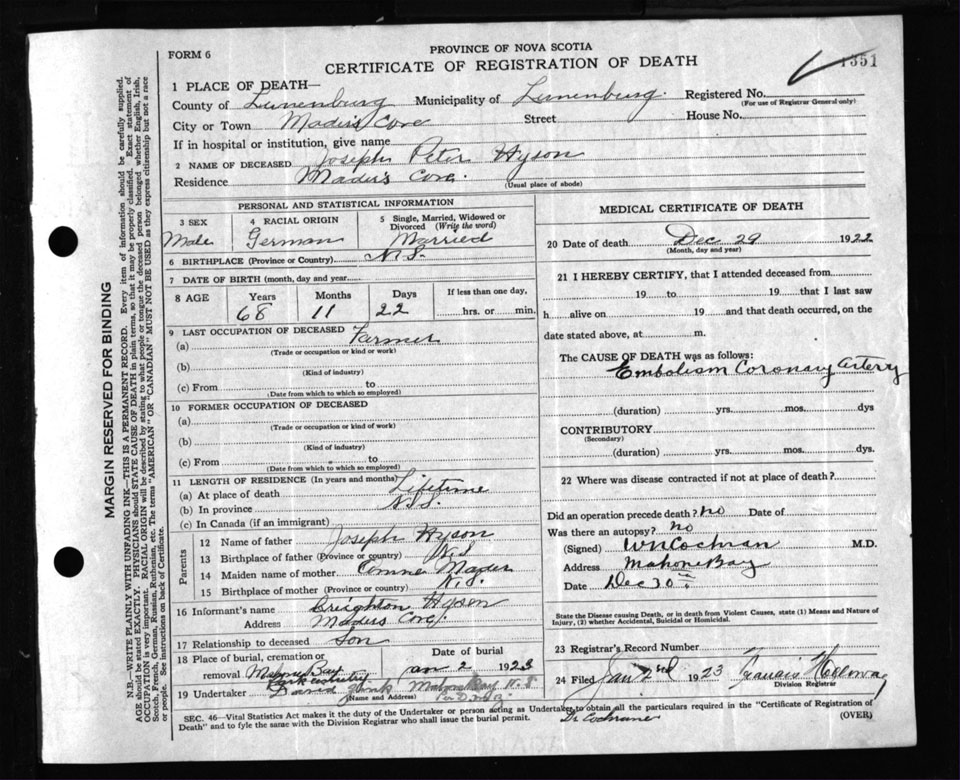 FORM 6
PROVINCE OF NOVA SCOTIA
CERTIFICATE OF REGISTRATION OF DEATH
1351
1 PLACE OF DEATH—
County of Lunenburg Municipality of Lunenburg. Registered No.
(For use of Registrar General only)
City or Town Maders Cove Street House No.
If in hospital or institution, give name
2 NAME OF DECEASED Joseph Peter Hyson
Residence Mader's Cove.
(Usual place of abode)
PERSONAL AND STATISTICAL INFORMATION
3 SEX 4 RACIAL ORIGIN 5 Single, Married, Widowed or Divorced (Write the word)
Male German Married
6 BIRTHPLACE (Province or Country) N.S.
7 DATE OF BIRTH (month, day and year)
8 AGE Years Months Days If less than one day,
68 11 22 hrs. or min.
9 LAST OCCUPATION OF DECEASED
(a) Farmer
(Trade or occupation or kind or work)
(b)
(Kind of industry)
(c) From to
(Date from which to which so employed)
10 FORMER OCCUPATION OF DECEASED
(a)
(Trade or occupation or kind of work)
(b)
(Kind of industry)
(c) From to
(Date from which to which so employed)
11 LENGTH OF RESIDENCE (In years and months)
(a) At place of death Lifetime
(b) In province N.S.
(c) In Canada (if an immigrant)
Parents
12 Name of father Joseph Hyson
13 Birthplace of father (Province or country) N.S
14 Maiden name of mother Mader
15 Birthplace of mother (Province or country) N.S.
16 Informant's name Creighton Hyson
Address Maders Cove.
17 Relationship to deceased Son
18 Place of burial, cremation or Date of burial
removal Mahone Bay Jan 2 1923
Park cemetery
19 Undertaker David Mahone Bay N.S
(Name and Address)
MEDICAL CERTIFICATE OF DEATH
20 Date of death Dec 29 1922
(Month, day and year)
21 I HEREBY CERTIFY, that I attended deceased from
19 to 19 that I last saw
h alive on 19 and that death occurred, on
date stated above, at m.
The CAUSE OF DEATH was as follows:
Embolism Coronary artery
(duration) yrs. mos. dys
CONTRIBUTORY
(Secondary)
(duration) yrs. mos. dys.
22 Where was disease contracted if not at place of death?
Did an operation precede death? no Date of
Was there an autopsy? no
(Signed) W N Cochran M.D.
Address Mahone Bay
Date Dec 30th
State the Disease causing Death, or in death from Violent Causes, state (1) Means and Nature of
Injury, (2) whether Accidental, Suicidal or Homicidal.
23 Registrar's Record Number
24 Filed Jan 2nd 1923 Holloway
Division Registrar
SEC. 46—Vital Statistics Act makes it the duty of the Undertaker or person acting as Undertaker to obtain all the particulars required in the "Certificate of Registration of
Death" and to fyle the same with the Division Registrar who shall issue the burial permit. Dr Cochrane (OVER)
MARGIN RESERVED FOR BINDING
N.B.—WRITE PLAINLY WITH UNFADING INK—THIS IS A PERMANENT RECORD. Every item of information should be carefully supplied.
AGE should be stated EXACTLY. PHYSICIANS should STATE CAUSE OF DEATH in plain terms, so that it may be properly classified. Exact statement of
OCCUPATION is very important. RACIAL ORIGIN will be described by stating to what people or tongue the deceased person belonged whether English, Irish,
Scotch, French, German, Russian, Ruthenian, etc. The terms "AMERICAN" OR "CANADIAN" MUST NOT BE USED as they express citizenship but not a race
or people. See instructions on back of Certificate.